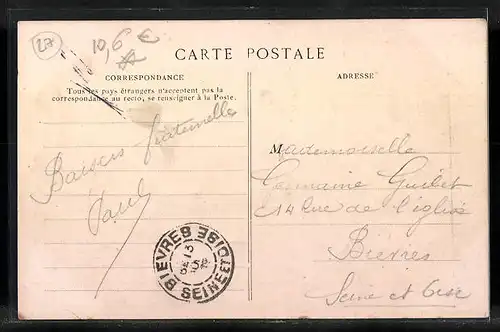 27
10,6 €
CARTE POSTALE
CORRESPONDANCE
Tous les pays étrangers n'acceptent pas la
correspondance au recto, se renseigner à la Poste.
ADRESSE
Baisers fraternelles
Paul
Mademoiselle
Germaine Guilet
14 Rue de l'église
Bièvres
Seine et Oise
BIEVRES
13
SEINE ET OISE